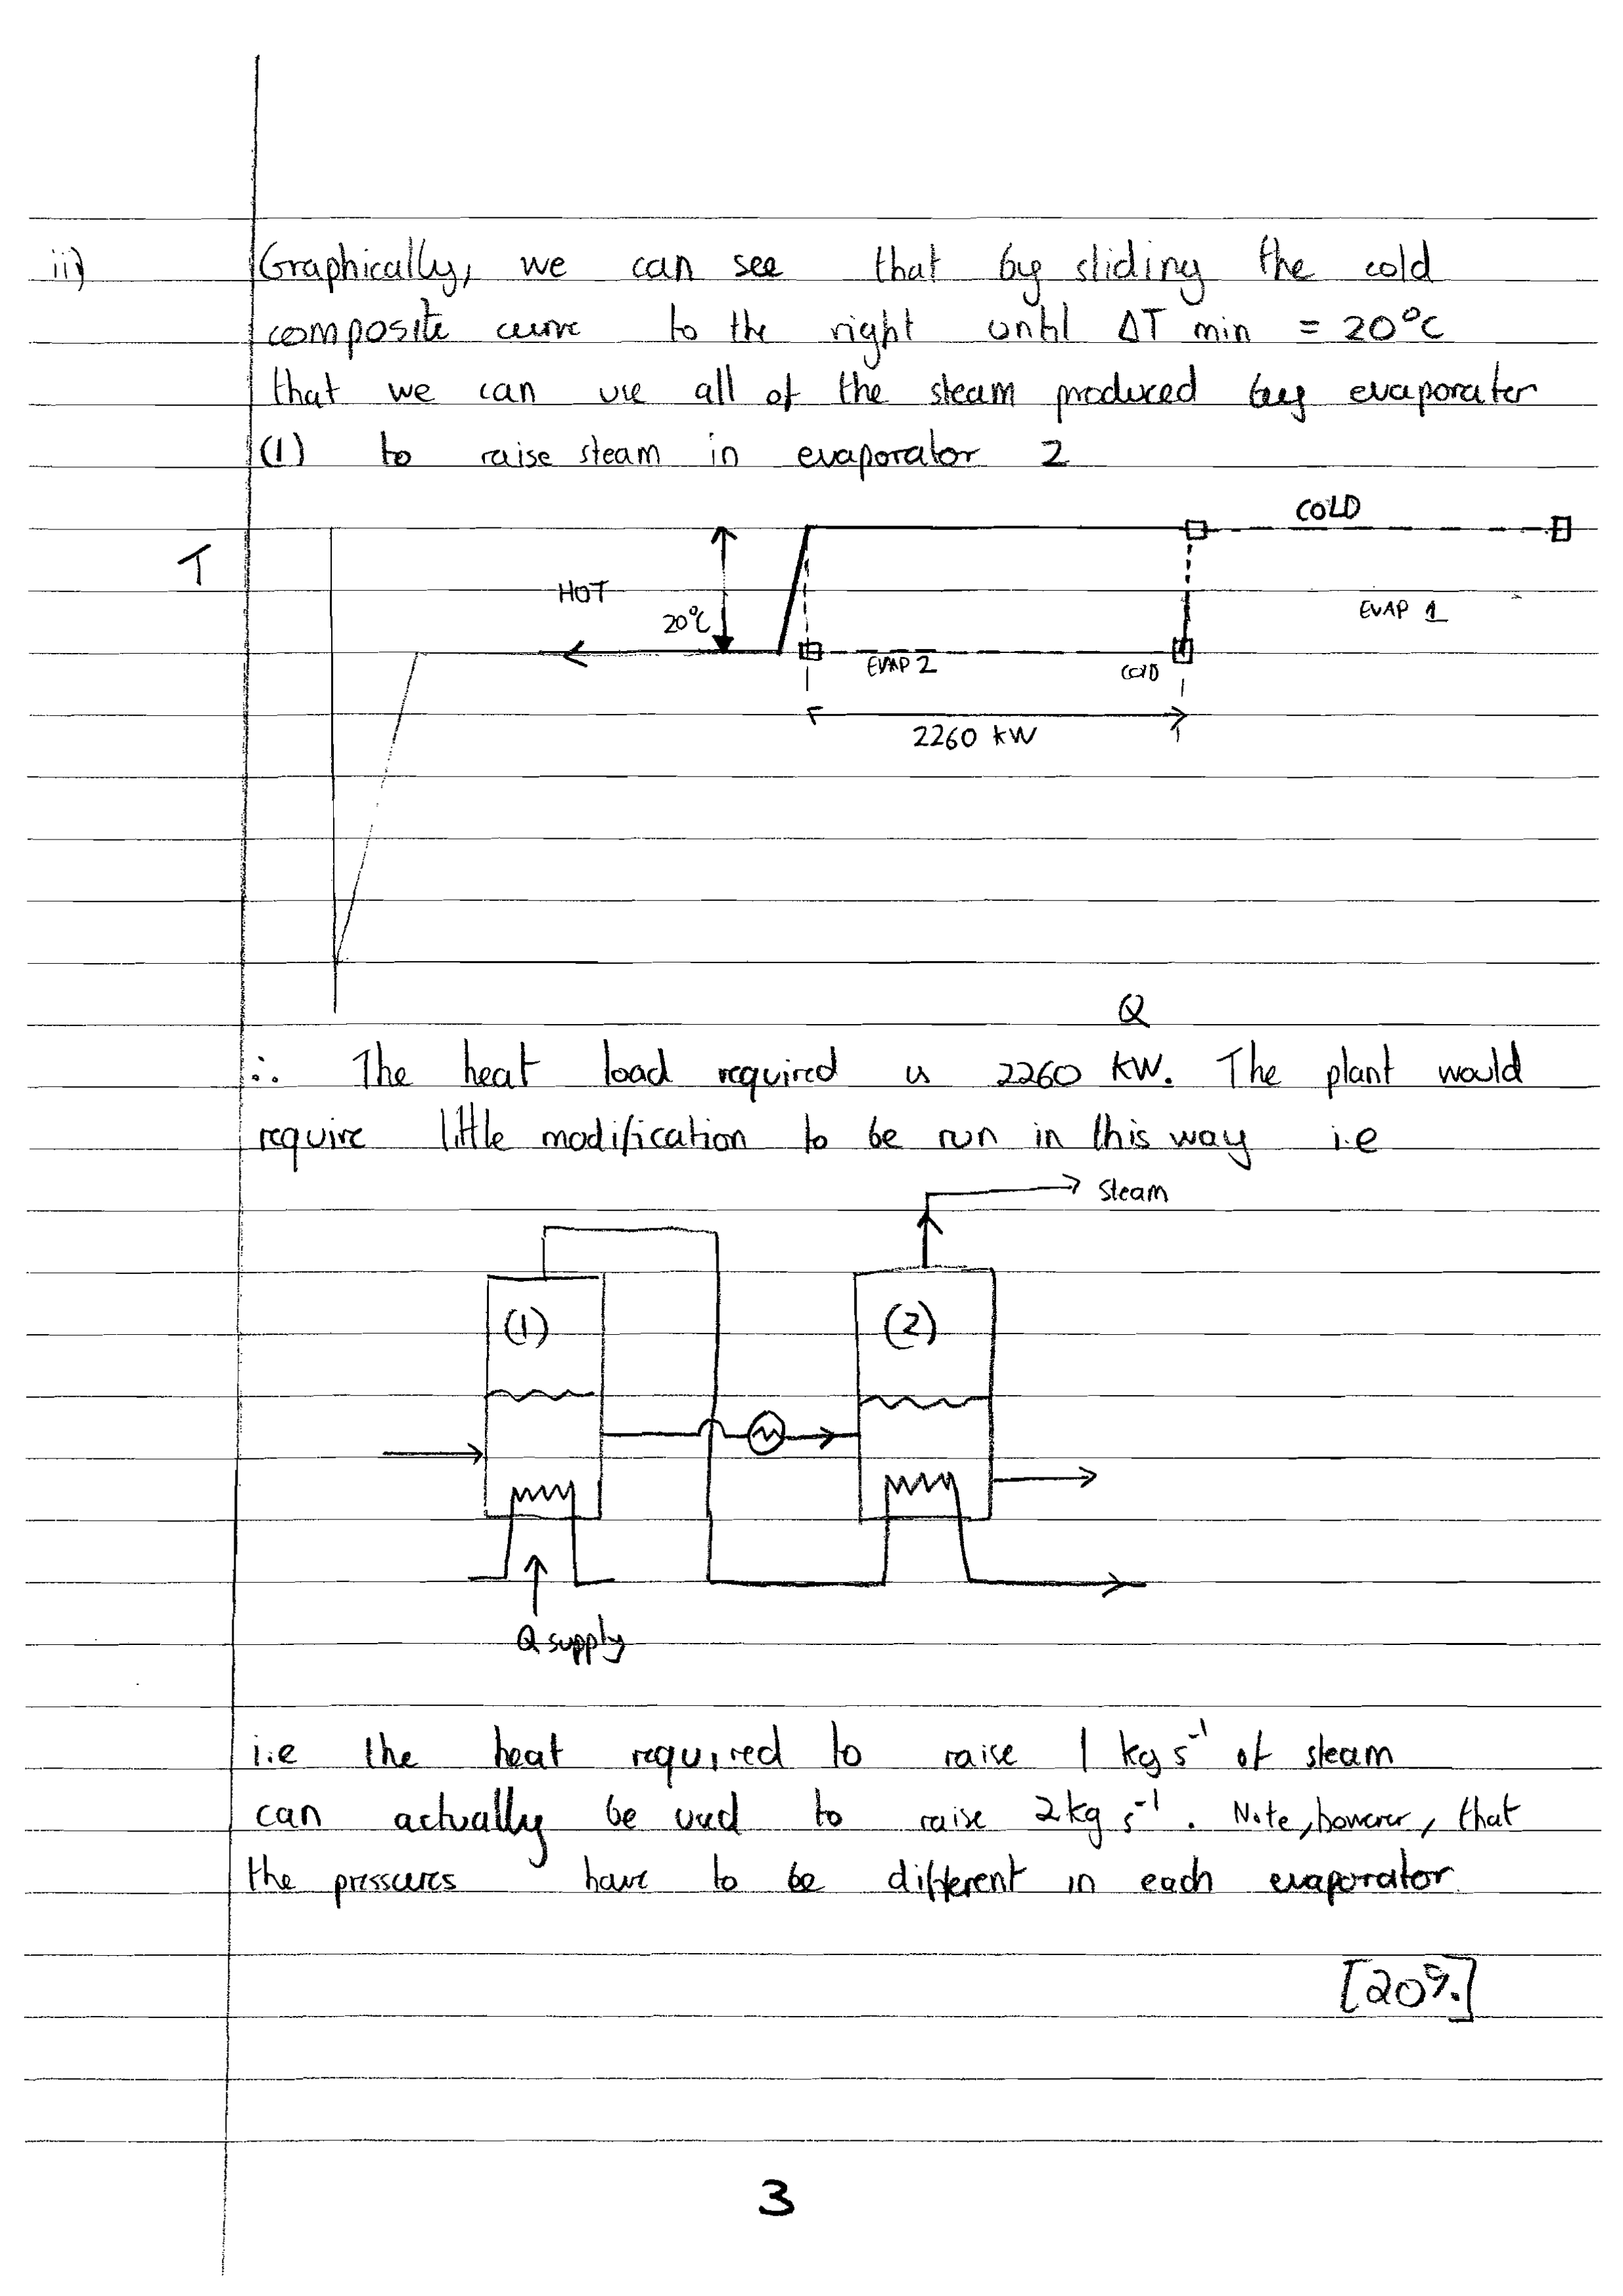 ii) Graphically, we can see that by sliding the cold
composite curve to the right until ΔT min = 20°C
that we can use all of the steam produced by evaporater
(1) to raise steam in evaporator 2
COLD
T
HOT
20°C
EVAP 1
EVAP 2
COLD
2260 kW
Q
∴ The heat load required is 2260 kW. The plant would
require little modification to be run in this way i.e
steam
(1)
(2)
Q supply
i.e the heat required to raise 1 kg s⁻¹ of steam
can actually be used to raise 2kg s⁻¹. Note, however, that
the pressures have to be different in each evaporator.
[20%]
3